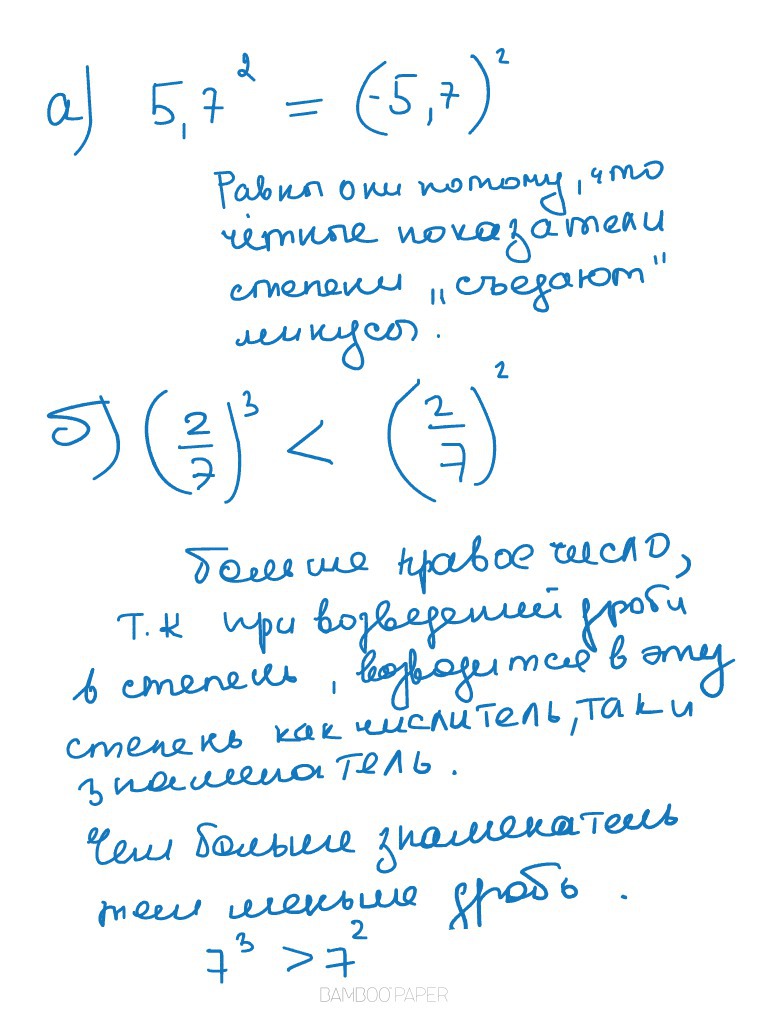 а) 5,7² = (-5,7)²
Равны они потому, что
чётные показатели
степени „съедают"
минусы.
б) (2/7)³ < (2/7)²
больше правое число,
т.к при возведений дроби
в степень, возводится в эту
степень как числитель, так и
знаменатель.
Чем больше знаменатель
тем меньше дробь.
7³ > 7²
BAMBOO PAPER